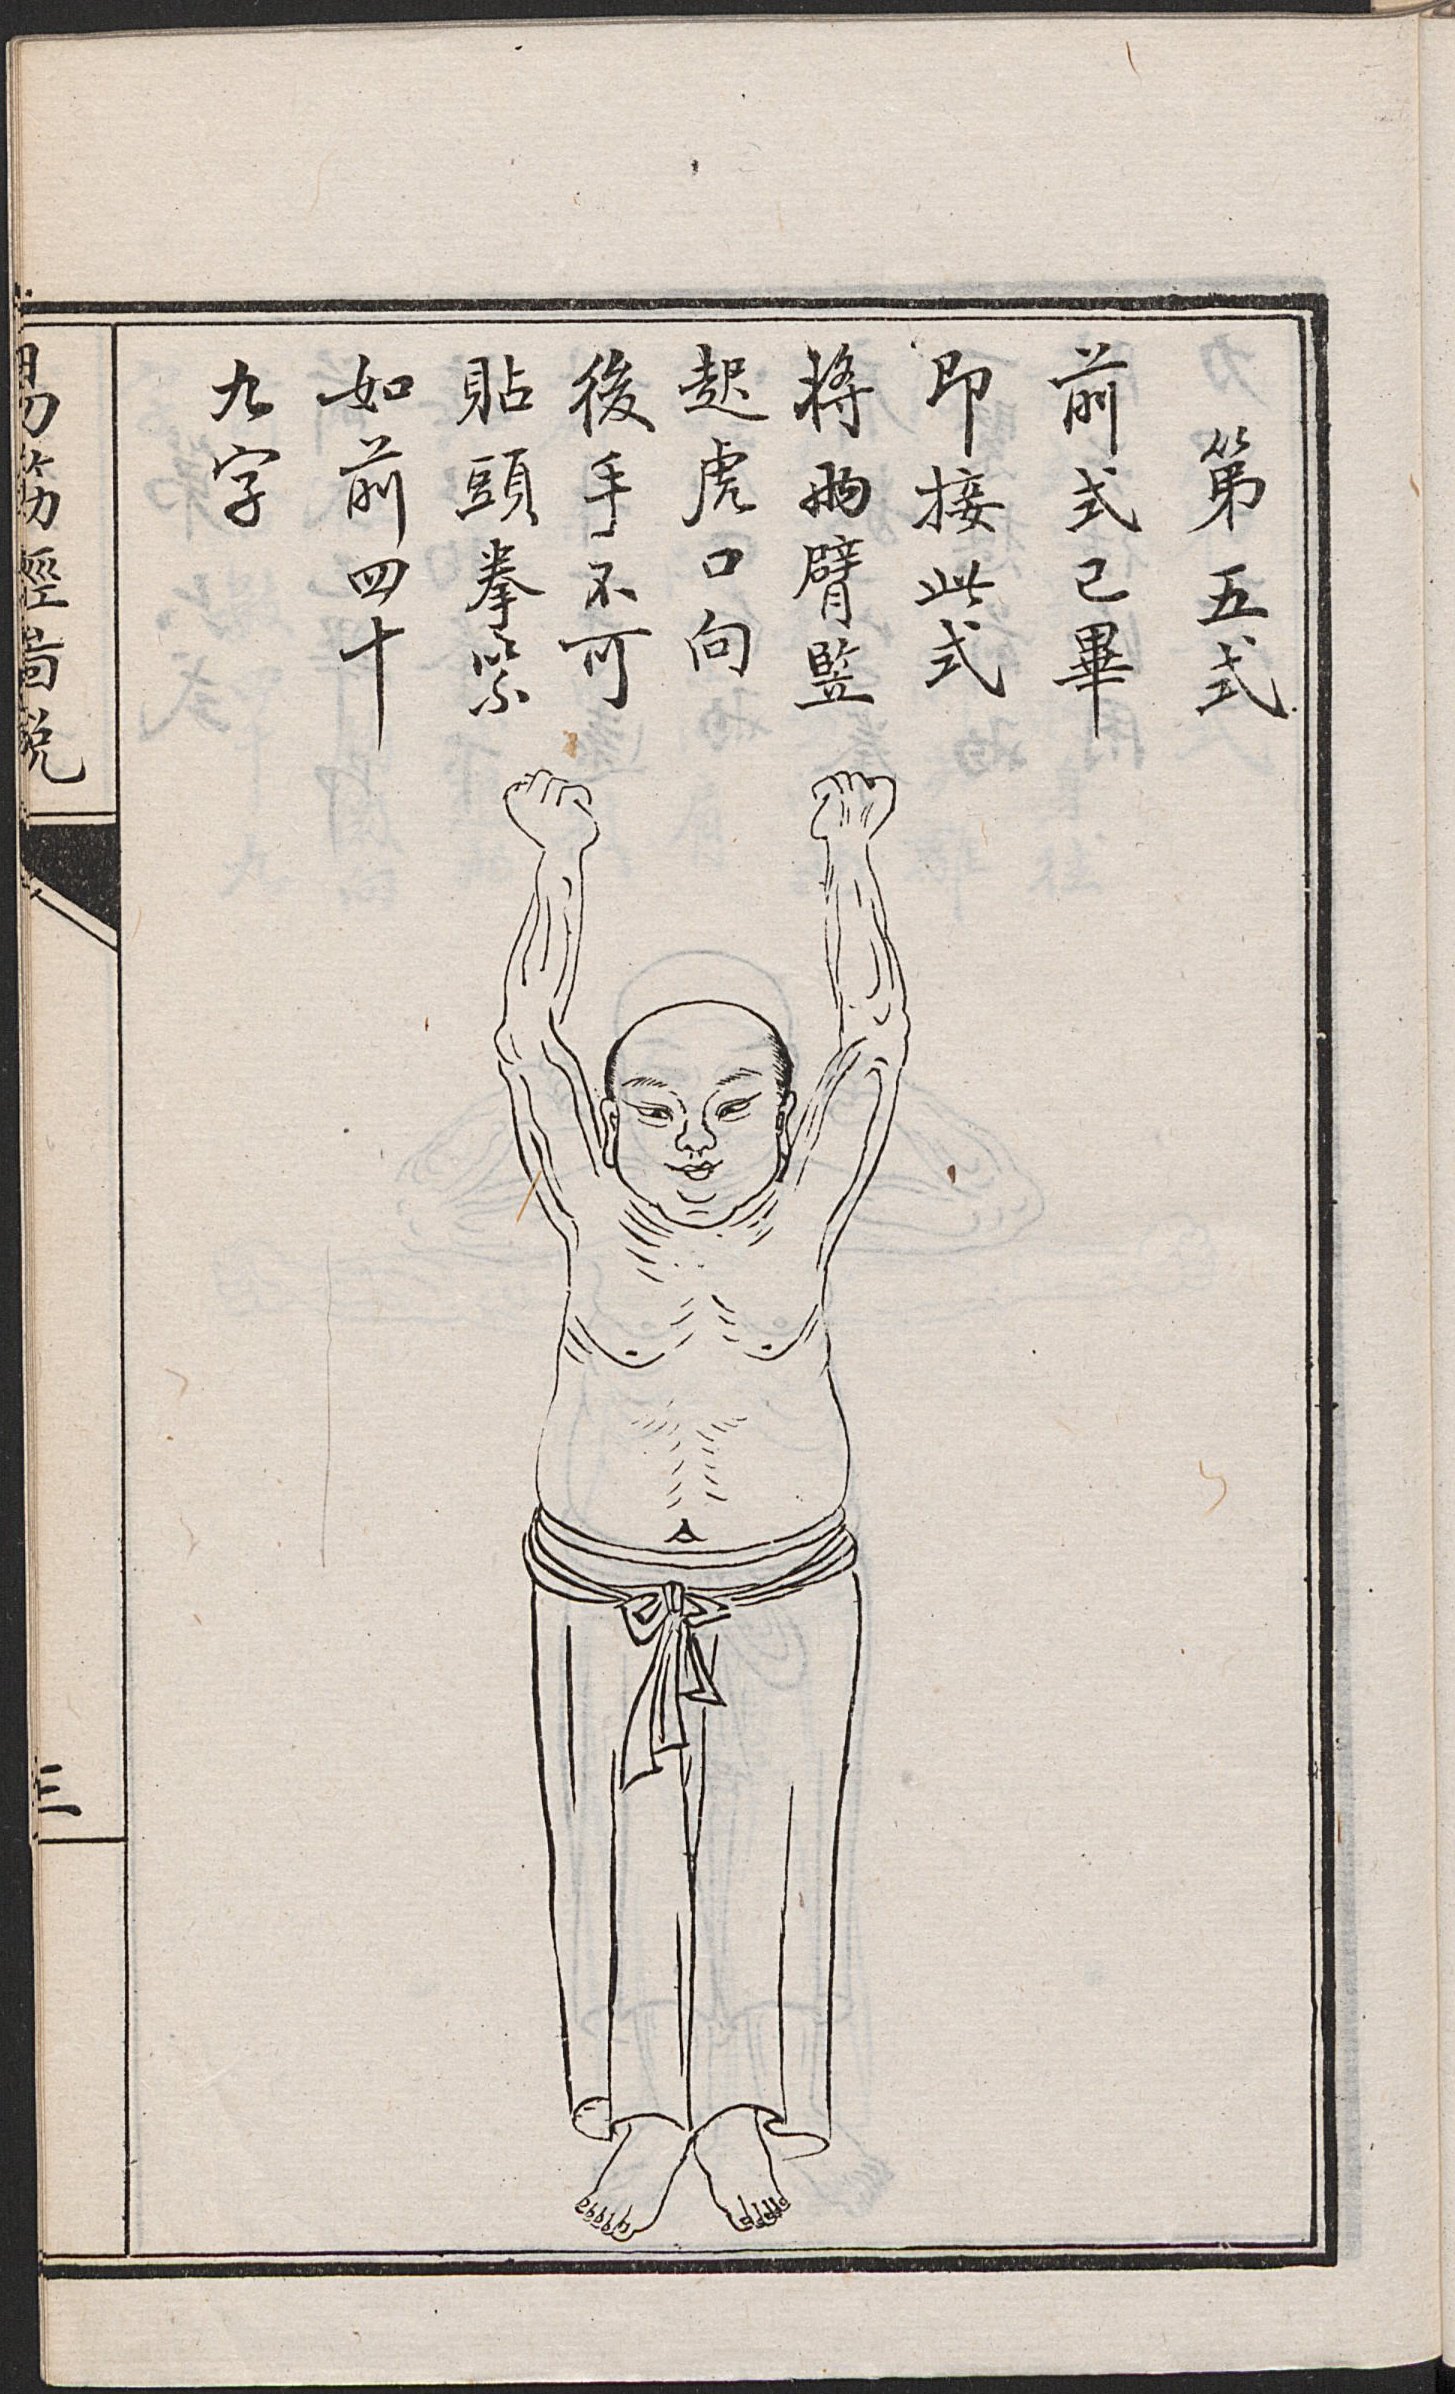 第五式
前式已畢
即接此式
將兩臂竪
起虎口向
後手不可
貼頭拳緊
如前四十
九字
易筋經啚說
三